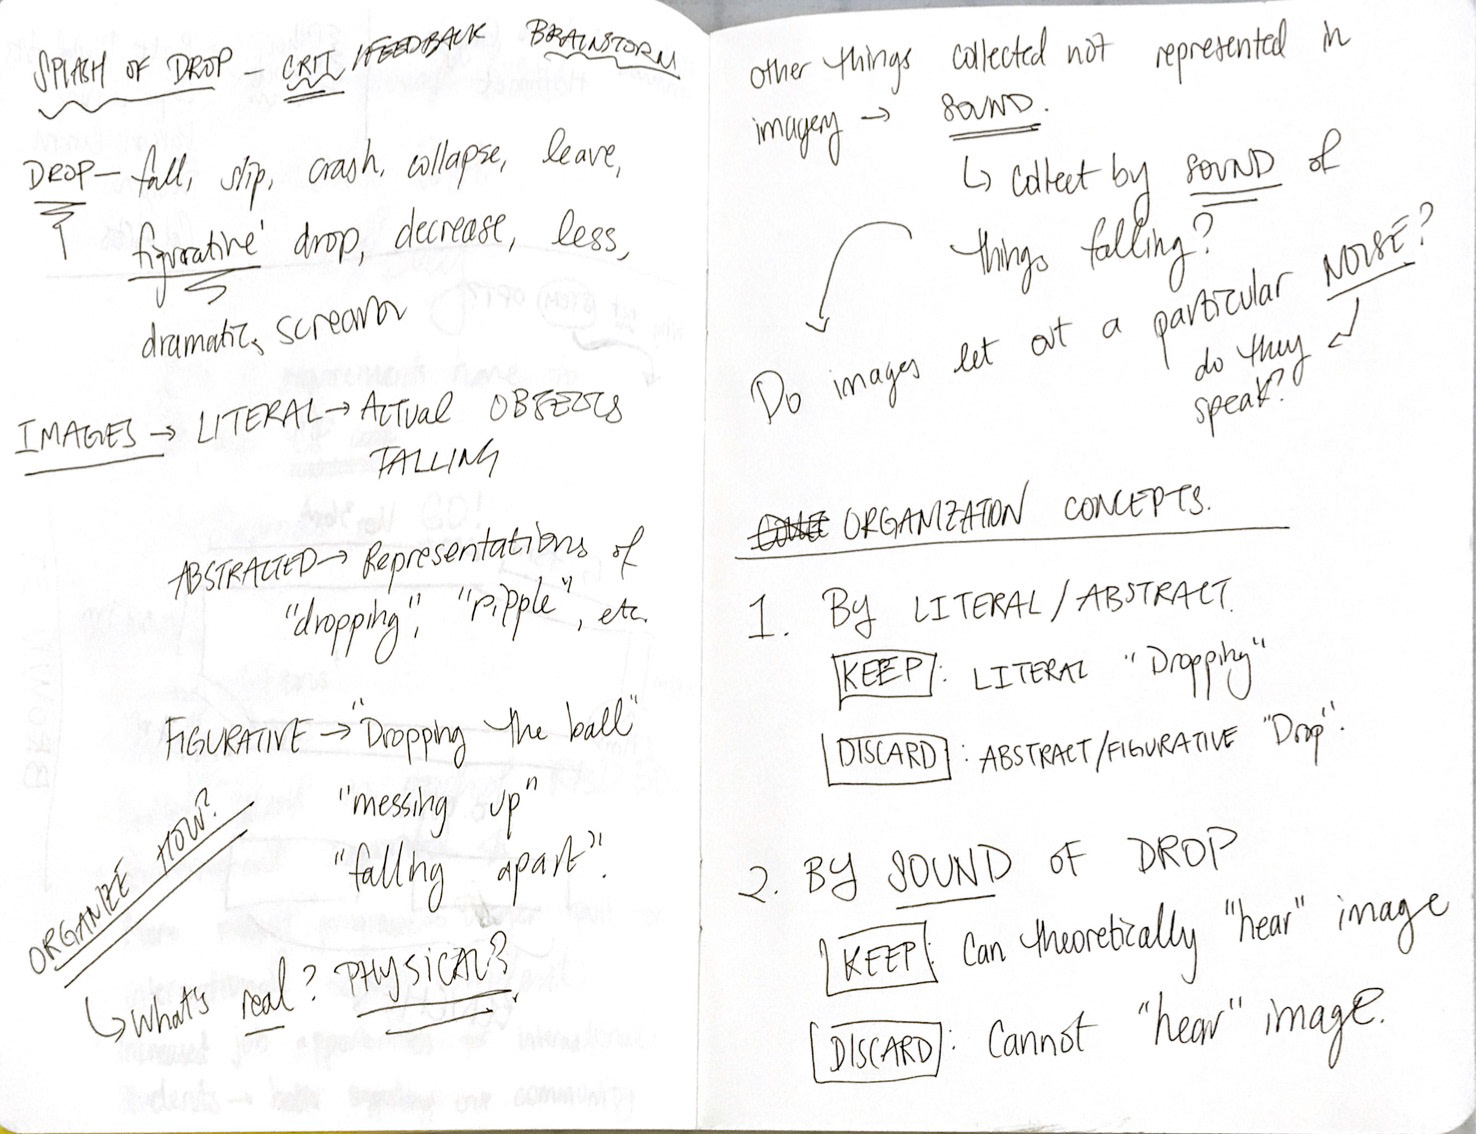 SPLASH OF DROP – CRIT/FEEDBACK BRAINSTORM
DROP – fall, slip, crash, collapse, leave,
figurative drop, decrease, less,
dramatic, scream
IMAGES → LITERAL → Actual OBJECTS
FALLING
ABSTRACTED → Representations of
"dropping", "ripple", etc.
FIGURATIVE → "Dropping the ball"
"messing up"
"falling apart".
ORGANIZE HOW?
↳ What's real? PHYSICAL?
other things collected not represented in
imagery → SOUND.
↳ collect by SOUND of
things falling?
Do images let out a particular NOISE?
do they
speak?
ORGANIZATION CONCEPTS.
1. By LITERAL/ABSTRACT.
KEEP: LITERAL "Dropping"
DISCARD: ABSTRACT/FIGURATIVE "Drop".
2. By SOUND OF DROP
KEEP: Can theoretically "hear" image
DISCARD: Cannot "hear" image.